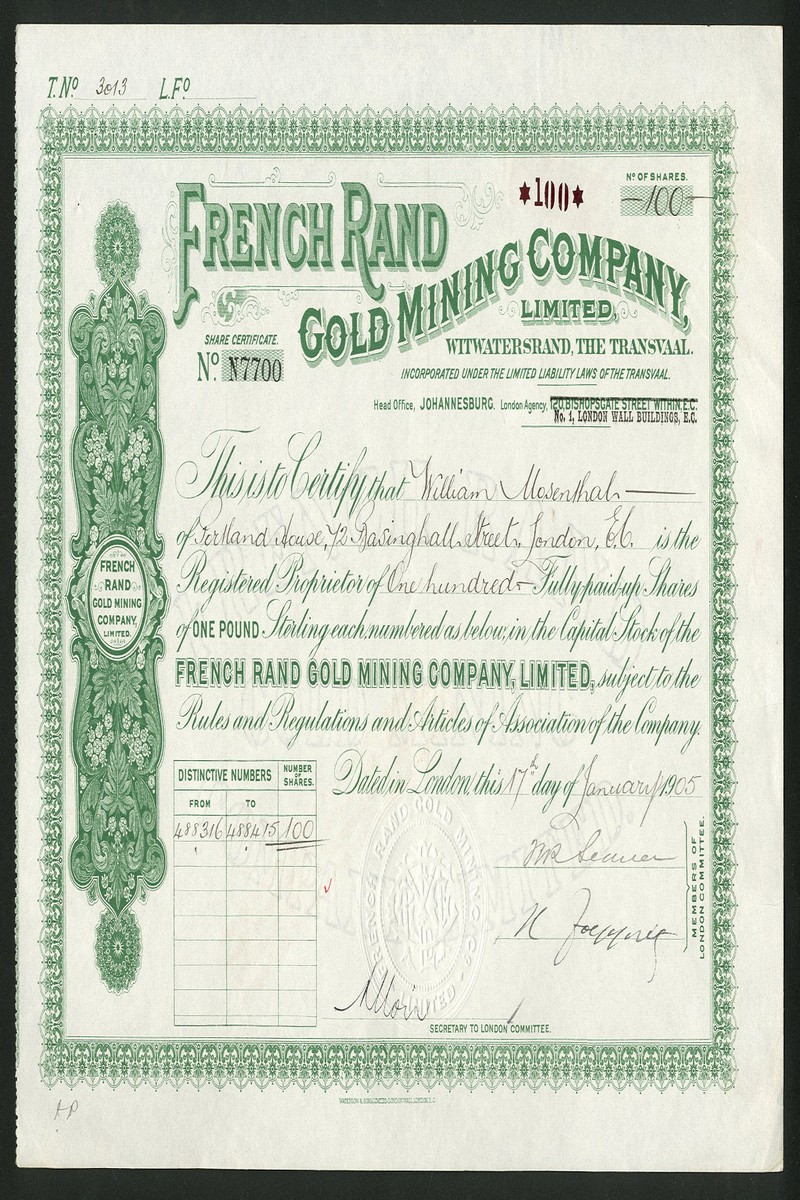 T. Nº 3013 L.Fº
✶100✶
Nº OF SHARES.
—100—
FRENCH RAND
GOLD MINING COMPANY,
LIMITED,
SHARE CERTIFICATE.
Nº N7700
WITWATERSRAND, THE TRANSVAAL.
INCORPORATED UNDER THE LIMITED LIABILITY LAWS OF THE TRANSVAAL.
Head Office, JOHANNESBURG. London Agency, 120, BISHOPSGATE STREET WITHIN, E.C.
No. 1, LONDON WALL BUILDINGS, E.C.
This is to Certify that William Mosenthal
of Portland House, 72 Basinghall Street, London, E.C. is the
Registered Proprietor of One hundred Fully-paid-up Shares
of ONE POUND Sterling each, numbered as below, in the Capital Stock of the
FRENCH RAND GOLD MINING COMPANY, LIMITED, subject to the
Rules and Regulations and Articles of Association of the Company.
Dated in London, this 17th day of January 1905
FRENCH
RAND
GOLD MINING
COMPANY,
LIMITED.
DISTINCTIVE NUMBERS
NUMBER OF SHARES.
FROM TO
488316 488415 100
FRENCH RAND GOLD MINING CO LIMITED
MEMBERS OF
LONDON COMMITTEE.
SECRETARY TO LONDON COMMITTEE.